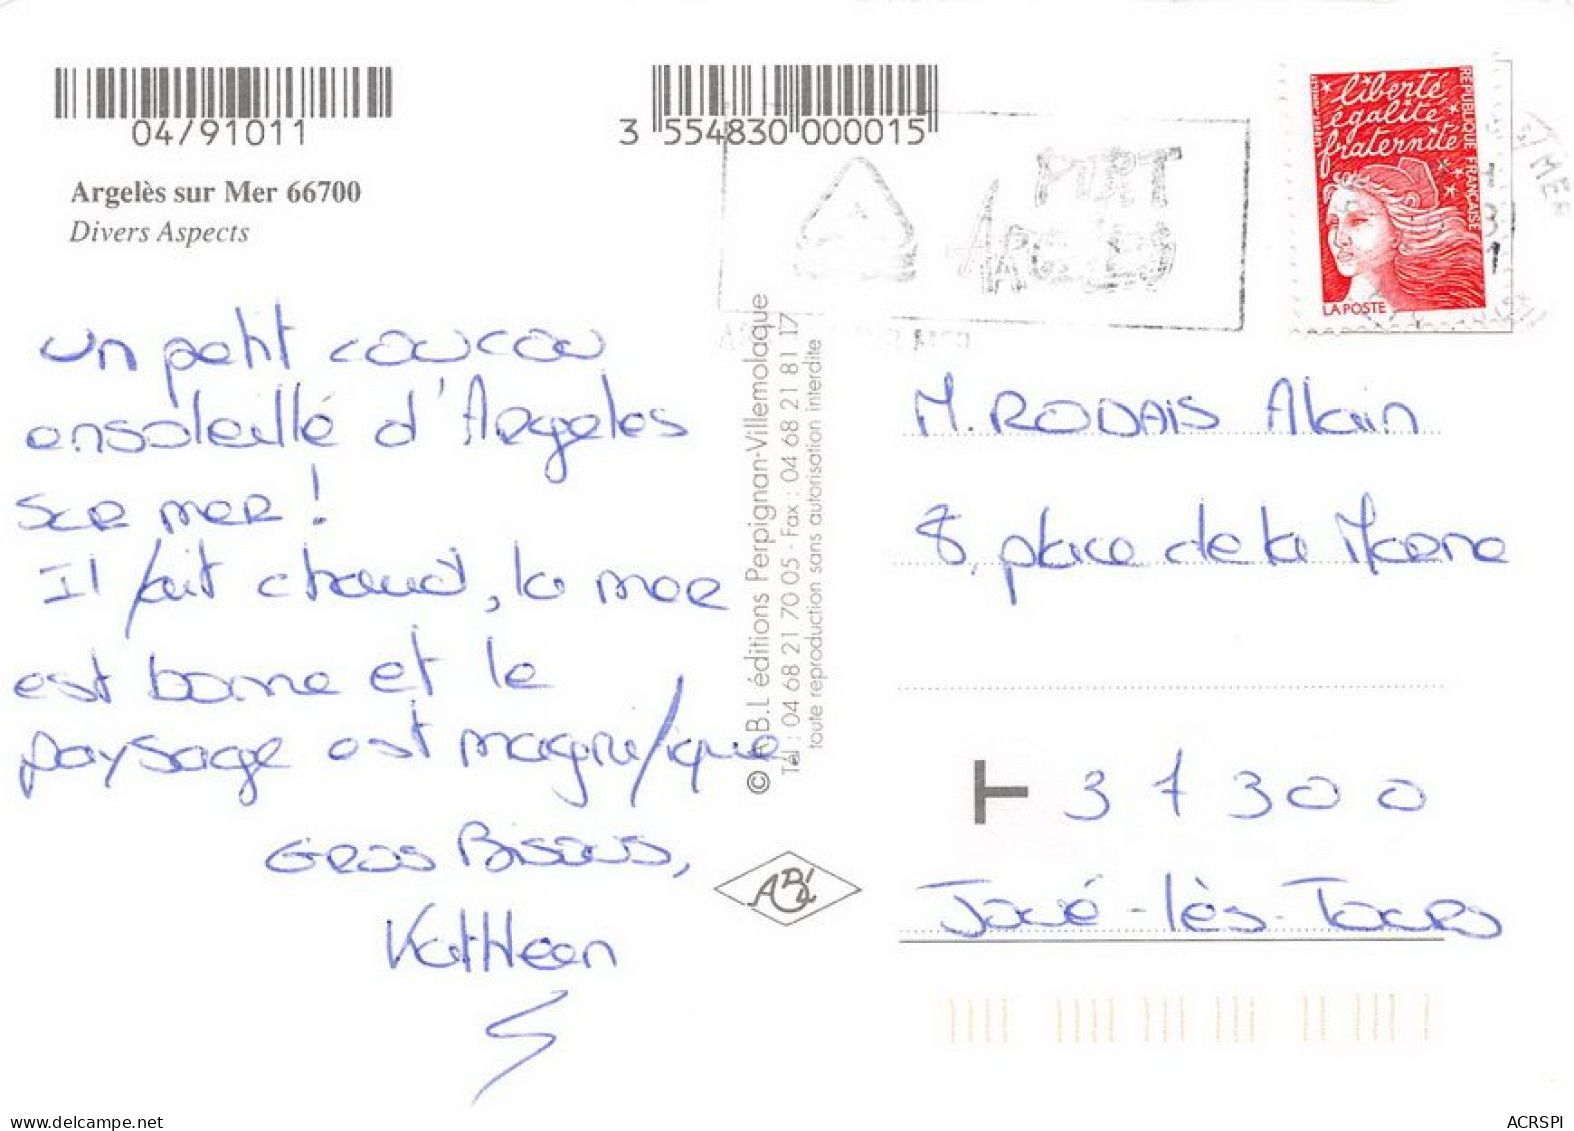 04/91011
3 554830 000015
Argelès sur Mer 66700
Divers Aspects
liberté
égalité
fraternité
RÉPUBLIQUE FRANÇAISE
LA POSTE
PORT
ARGELES
S/ MER
un petit coucou
ensoleillé d'Argeles
sur mer !
Il fait chaud, la mer
est bonne et le
paysage est magnifique
Gros Bisous,
Kathleen
© A.B.L éditions Perpignan-Villemolaque
Tél : 04 68 21 70 05 - Fax : 04 68 21 81 17
toute reproduction sans autorisation interdite
ABL
M. RODAIS Alain
8, place de la Marne
T 37300
Joué-lès-Tours
www.delcampe.net
ACRSPI